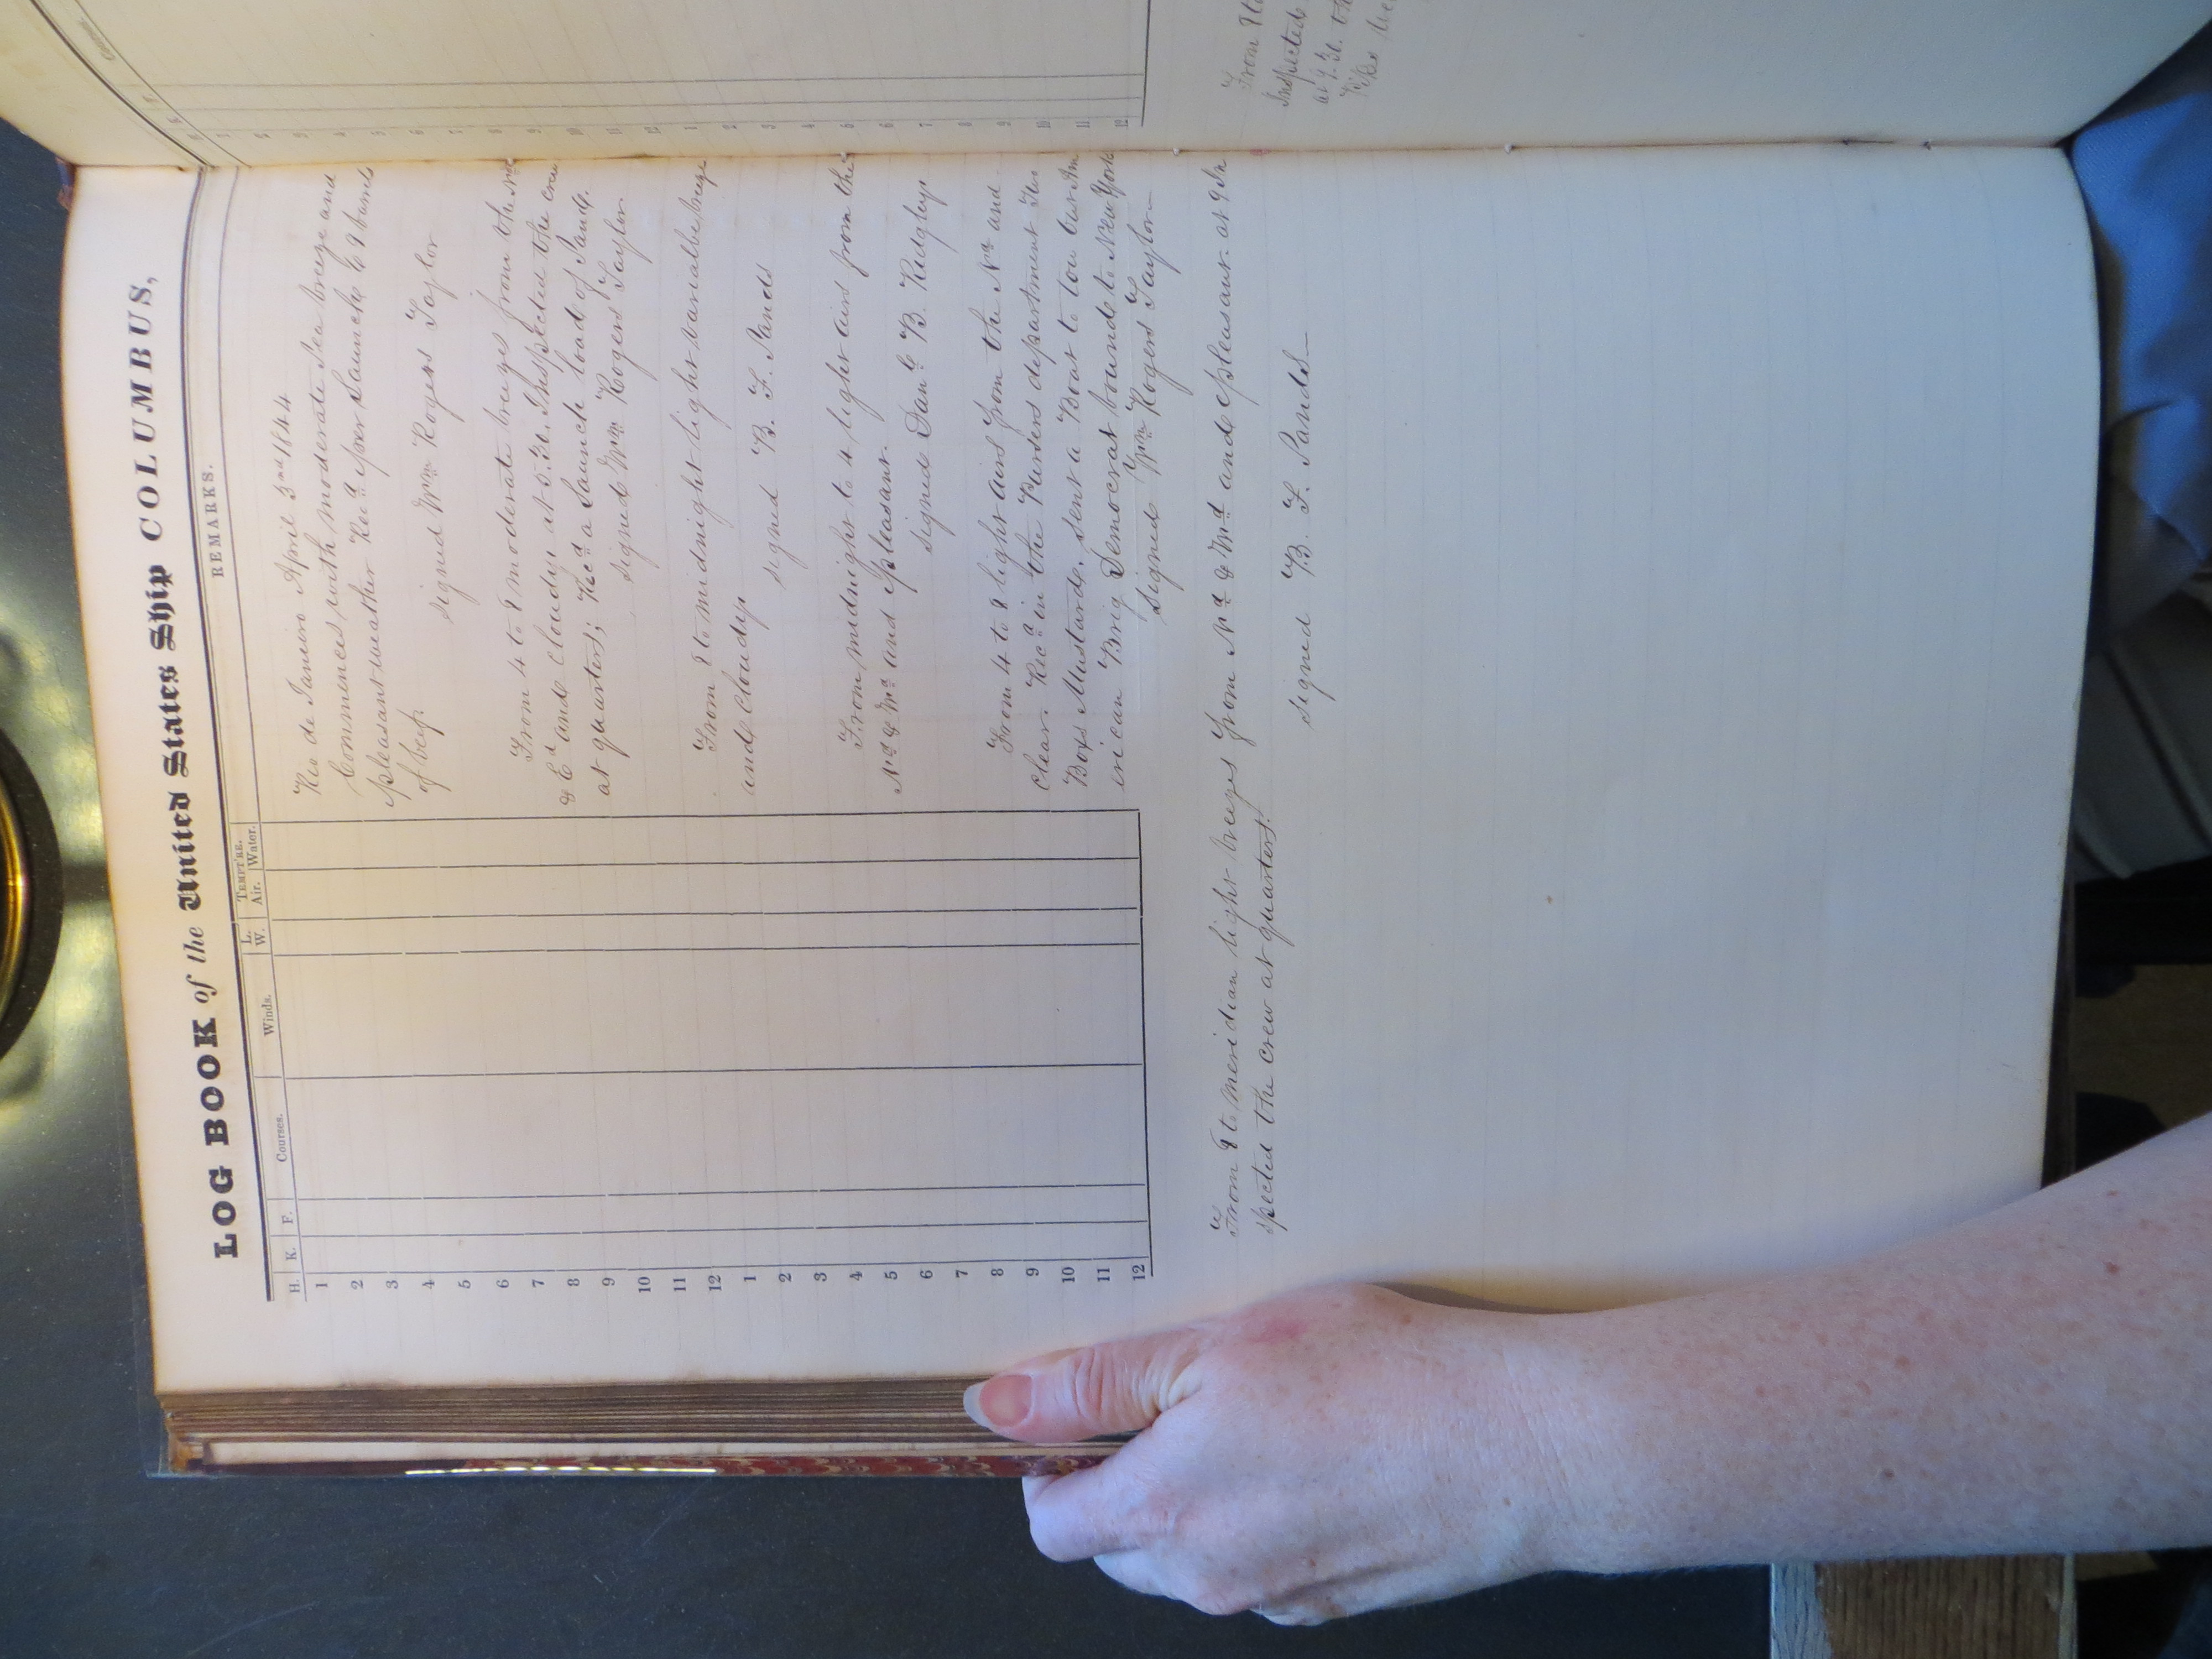 LOG BOOK of the United States Ship COLUMBUS,
REMARKS.
H. K. F. Courses. Winds. L. W. TEMPT'RE. Air. Water.
1
2
3
4
5
6
7
8
9
10
11
12
1
2
3
4
5
6
7
8
9
10
11
12
Rio de Janeiro April 3rd 1844
Commences with moderate Sea breeze and
pleasant weather Recd per Launch 69 bunds
of beef.
signed Wm Rogers Taylor
From 4 to 8 moderate breezes from the Nd
& Ed and Cloudy at 5.30. Inspected the crew
at quarters; Recd a Launch load of Sand.
signed Wm Rogers Taylor
From 8 to midnight light variable breeze
and Cloudy
signed B. F. Sands
From midnight to 4 light airs from the
Nd & Wd and pleasant.
signed Danl B. Ridgley
From 4 to 8 light airs from the Nd and
Clear. Recd in the Pursers department Two
Boxs Mustard. sent a Boat to tow out Am
erican Brig Democrat bound to New York
signed Wm Rogers Taylor
From 8 to Meridian light breezes from Nd & Wd and pleasant. at 9 In
spected the crew at quarters.
signed B. F. Sands
Courses
K. F.
1
2
3
4
5
6
7
8
9
10
11
12
1
2
3
4
5
6
7
8
9
10
11
12
From
Inspected
at